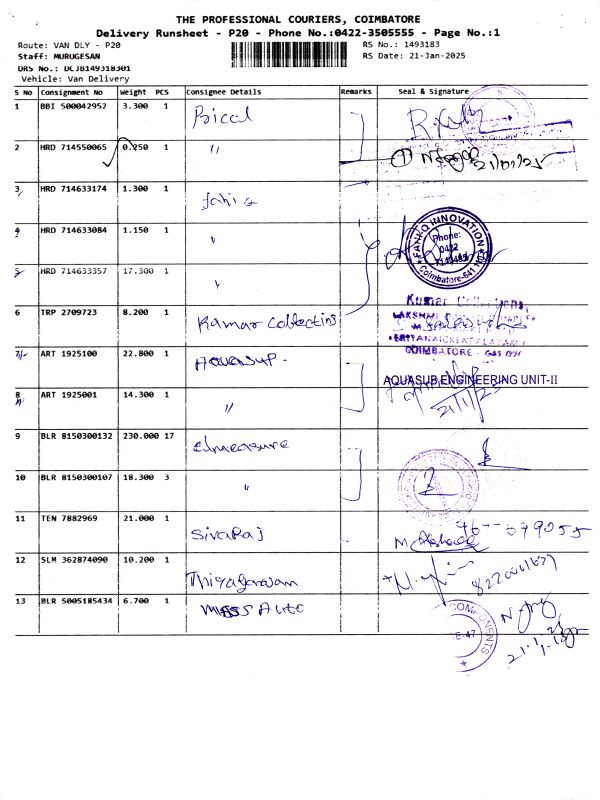 THE PROFESSIONAL COURIERS, COIMBATORE
Delivery Runsheet - P20 - Phone No.:0422-3505555 - Page No.:1
Route: VAN DLY - P20 RS No.: 1493183
Staff: MURUGESAN RS Date: 21-Jan-2025
DRS No.: DCJB149318301
Vehicle: Van Delivery
S No Consignment No Weight PCS Consignee Details Remarks Seal & Signature
1 BBI 500042952 3.300 1 Pricol
2 HRD 714550065 0.250 1 " 21/01/25
3 HRD 714633174 1.300 1
4 HRD 714633084 1.150 1 "
FANIQ INNOVATION
Phone:
0422
Coimbatore-641
5 HRD 714633357 17.300 1 "
6 TRP 2709723 8.200 1 Kumar Collections
Kumar Collections,
COIMBATORE - 641
7 ART 1925100 22.800 1 Aquasub -
AQUASUB ENGINEERING UNIT-II
8 ART 1925001 14.300 1 " 21/1/25
9 BLR 8150300132 230.000 17 elmeasure
10 BLR 8150300107 18.300 3 "
11 TEN 7882969 21.000 1 Sivaraj
12 SLM 362874090 10.200 1 Thiyagarajan
13 BLR 5005185434 6.700 1 Mass Auto
COMPONENTS
E-47